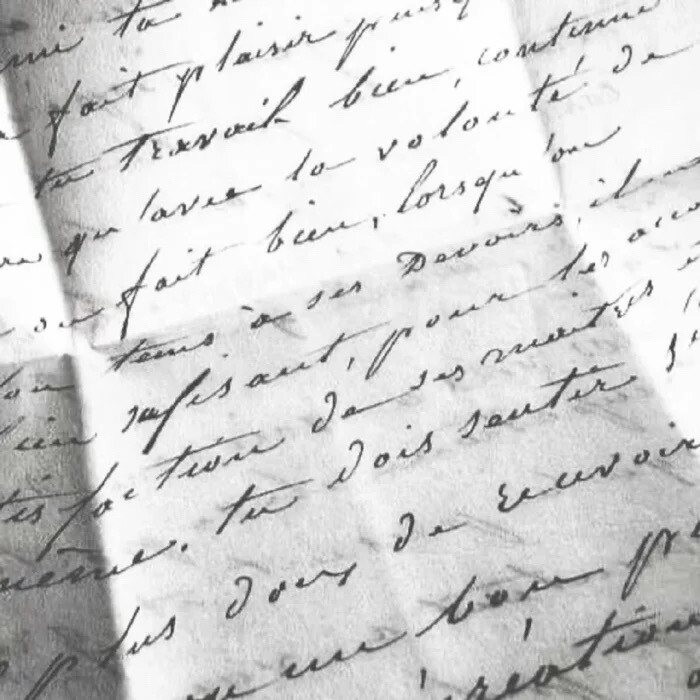 ta
fait plaisir puisq
tu travail bien, continue
qu'avec la volonté de
on fait bien, lorsqu'on
tems à ses Devoirs, il
bien sufisant, pour les acco
tisfaction de ses maitres
même. tu dois sentir
plus doux de recevoir
un bon
récréation